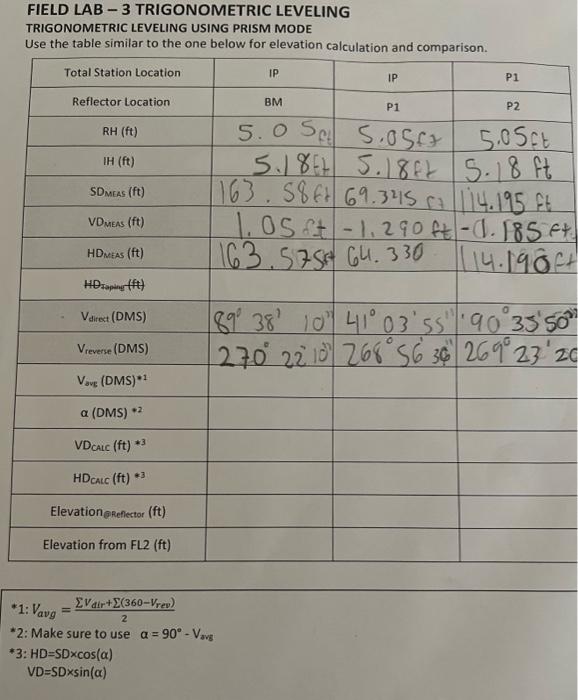 FIELD LAB – 3 TRIGONOMETRIC LEVELING
TRIGONOMETRIC LEVELING USING PRISM MODE
Use the table similar to the one below for elevation calculation and comparison.
Total Station Location IP IP P1
Reflector Location BM P1 P2
RH (ft) 5.05ft 5.05ft 5.05ft
IH (ft) 5.18ft 5.18ft 5.18 ft
SDMEAS (ft) 163.58ft 69.345 ft 114.195 ft
VDMEAS (ft) 1.05 ft -1.290 ft -1.185 ft
HDMEAS (ft) 163.575ft 64.330 114.190ft
HDTaping (ft)
Vdirect (DMS) 89° 38' 10" 41° 03' 55" 90° 35' 50"
Vreverse (DMS) 270° 22' 10" 268° 56' 269° 23' 20
Vavg (DMS)*1
α (DMS) *2
VDCALC (ft) *3
HDCALC (ft) *3
Elevation@Reflector (ft)
Elevation from FL2 (ft)
*1: Vavg = ∑Vdir+∑(360−Vrev) / 2
*2: Make sure to use α = 90° - Vavg
*3: HD=SD×cos(α)
VD=SD×sin(α)